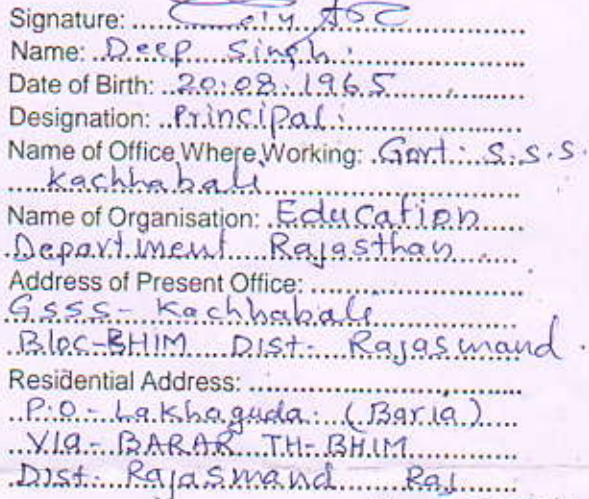 Signature:
Name: Deep Singh.
Date of Birth: 20.08.1965
Designation: Principal.
Name of Office Where Working: Govt. S.S.S.
Kachhabali
Name of Organisation: Education
Department Rajasthan
Address of Present Office:
GSSS- Kachhabali
Bloc-BHIM Dist- Rajasmand.
Residential Address:
P.O- Lakhaguda. (Baria)
VIA- BARAR TH-BHIM
Dist. Rajasmand Raj